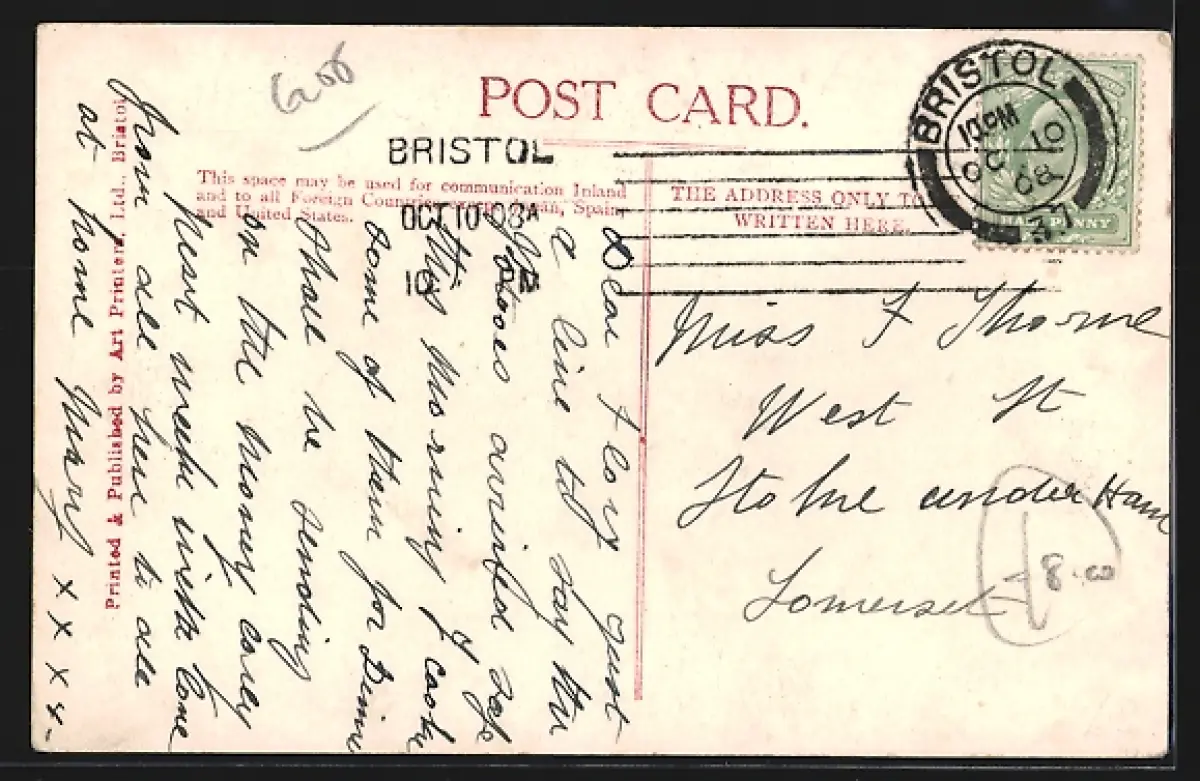 POST CARD.
BRISTOL
OCT 10 08
10
This space may be used for communication Inland
and to all Foreign Countries except Japan, Spain,
and United States.
THE ADDRESS ONLY TO
WRITTEN HERE.
BRISTOL
10 PM
OC 10
08
37
HALF PENNY
Miss F Thorne
West St
Stoke under Ham
Somerset
8.00
Dear Flory just
a line to say the
Potatoes arrived safe
this morning I cook
some of them for Dinner
Shall be sending
on the money early
next week with love
from all here to all
at home Mary x x x x
Printed & Published by Art Printers, Ltd., Bristol